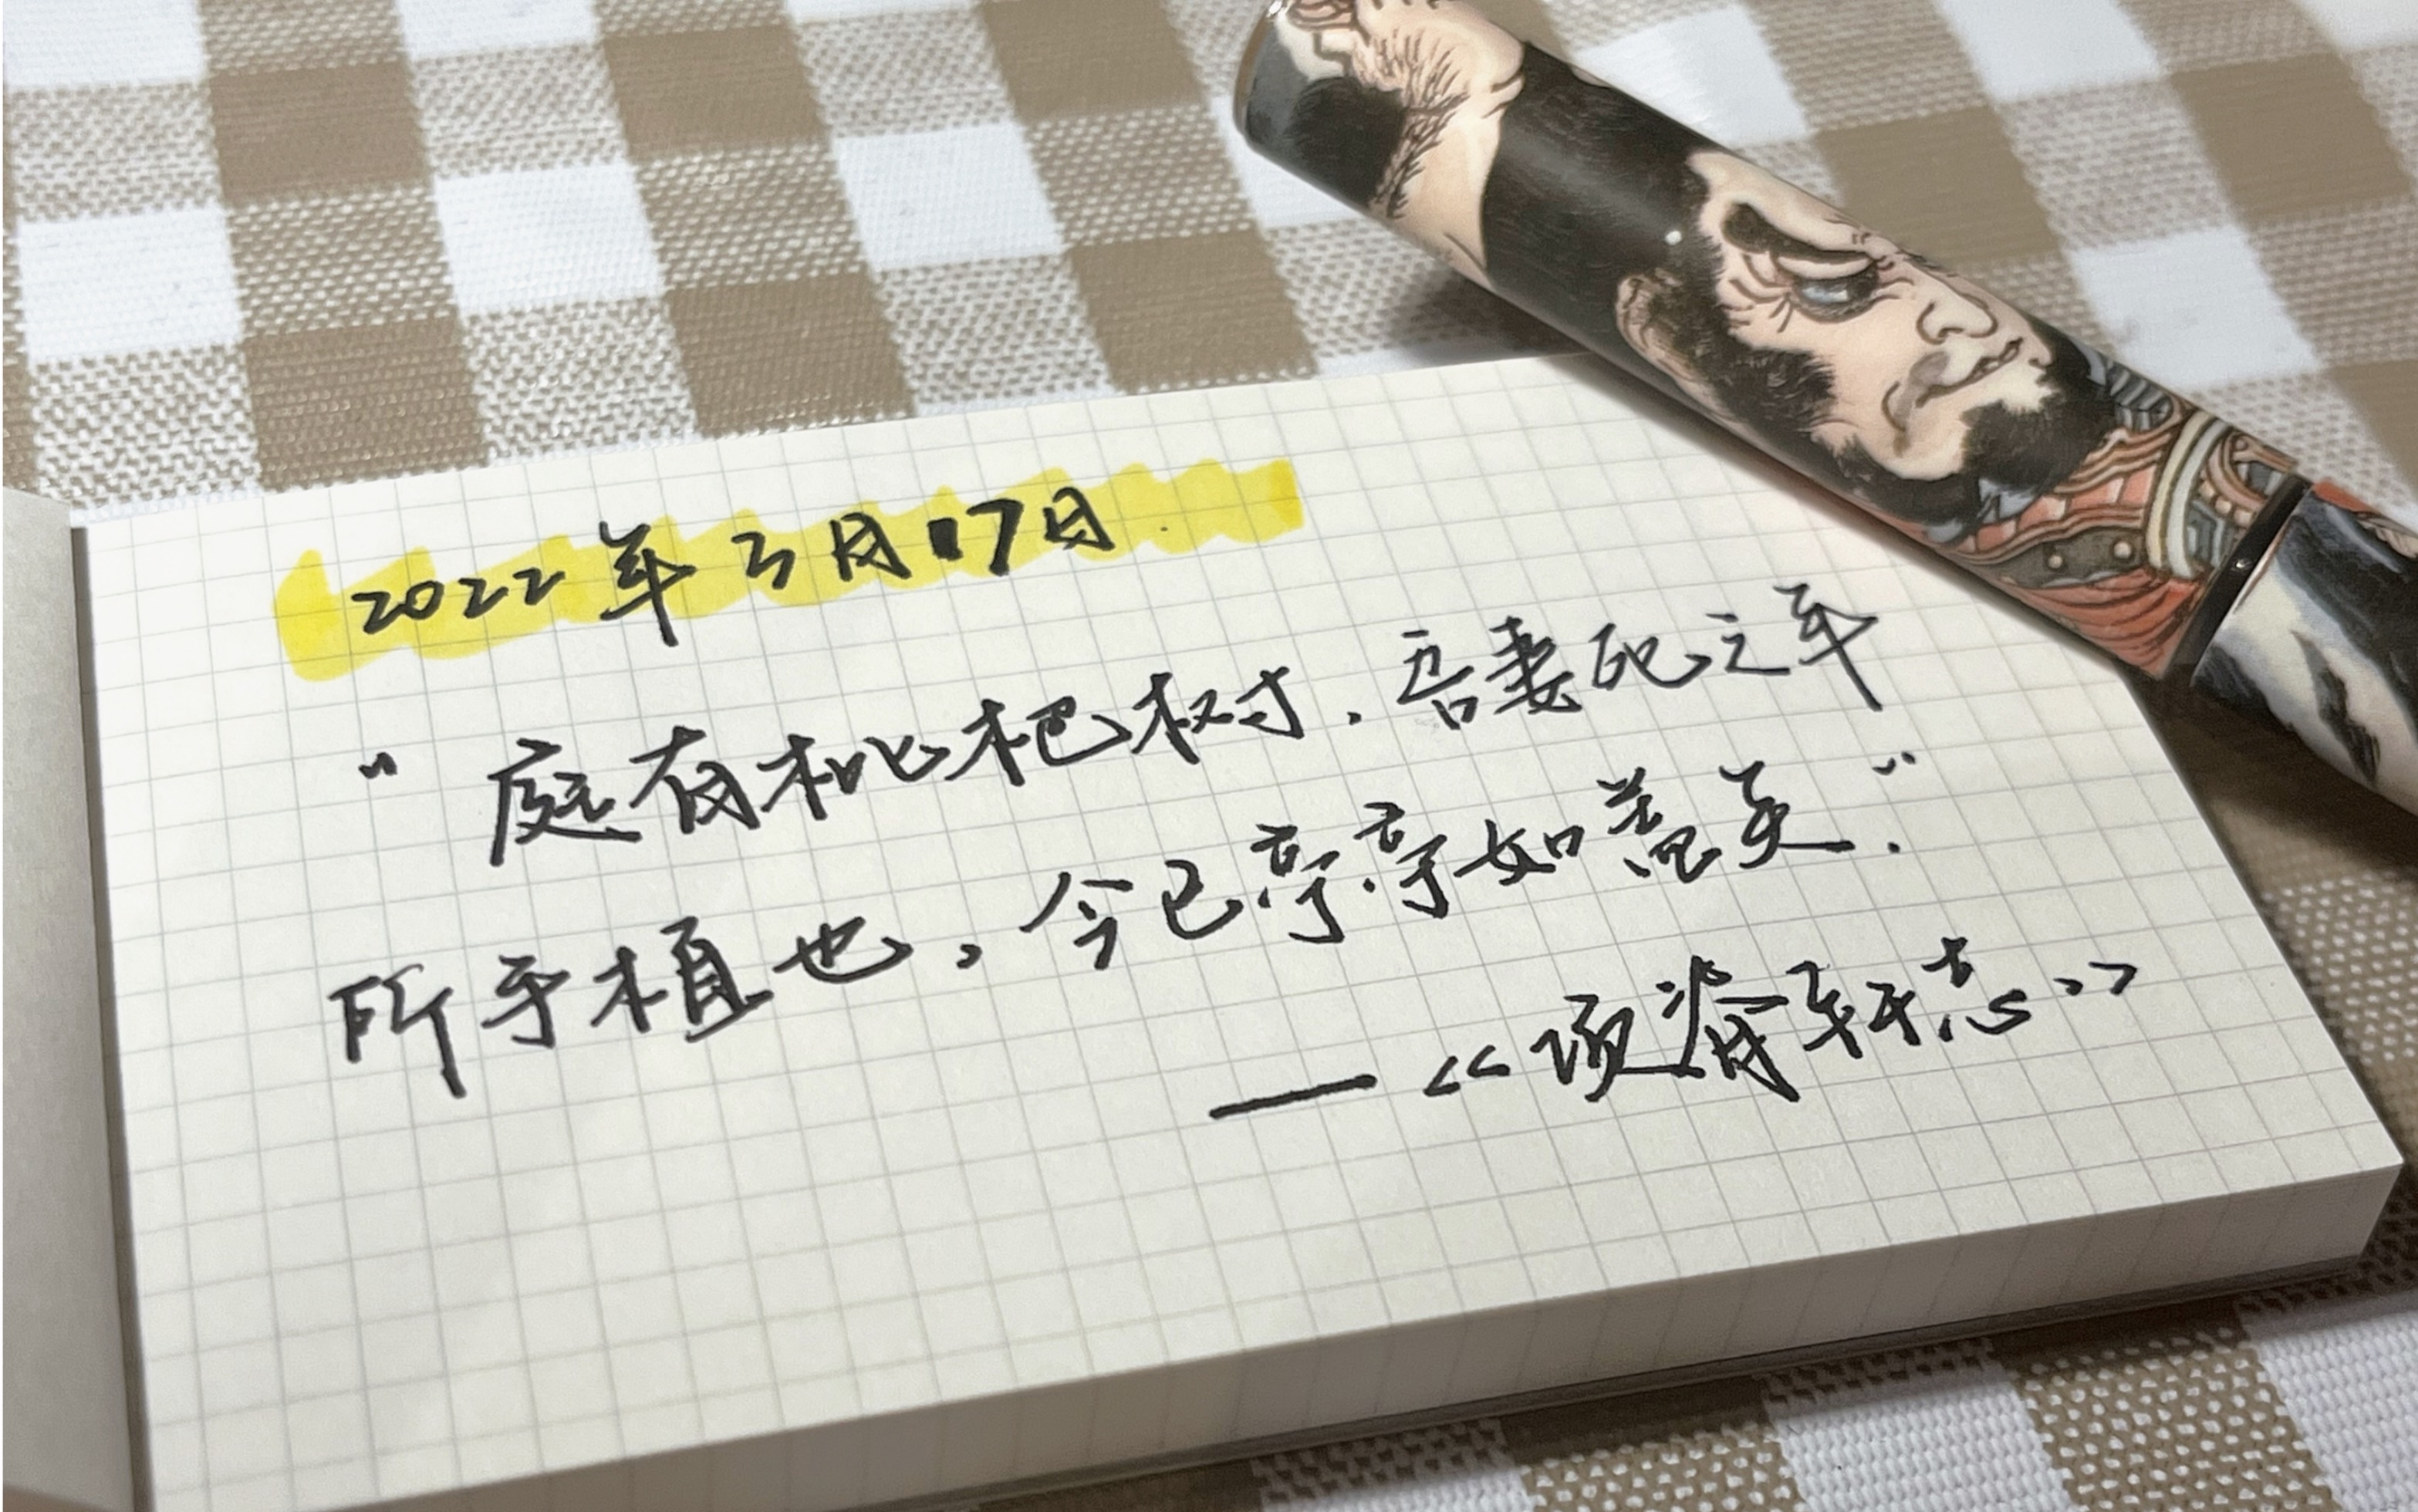 2022年3月17日
“庭有枇杷树,吾妻死之年
所手植也,今已亭亭如盖矣.”
—<<项脊轩志>>